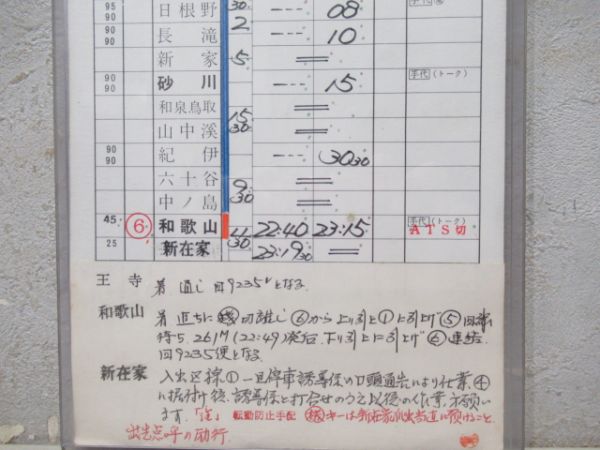 95 90 日根野 30 --- 08 手代
90 90 長滝 2 --- 10
新家 5 =
90 90 砂川 --- 15 手代(トーク)
和泉鳥取 =
山中溪 15 30 =
90 90 紀伊 --- 30 30
六十谷 =
中ノ島 9 30 =
45 ⑥ 和歌山 22:40 23:15 手代(トーク) ATS切
25 新在家 11 30 23:19 30 =
王寺 着 通し 回9235
和歌山 着 直ちに 切離し ⑥から上り引上①に引上げ ⑤
待ち. 261M (22:49) 発后. 下り引上に引上げ ⑥連結.
回9235便となる
新在家 入出区線① 一旦停車誘導係の口頭通告により仕業④
に据付け后、誘導係と打合せのうえ以後の作業お願い
ます.「注」転動防止手配 キーは新在家派出当直に預けること.
出先点呼の励行.